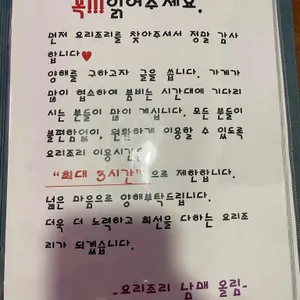 꼭!!! 읽어주세요.
먼저 요리조리를 찾아주셔서 정말 감사
합니다♥
양해를 구하고자 글을 씁니다. 가게가
많이 협소하여 붐비는 시간대에 기다리
시는 분들이 많이 계십니다. 모든 분들이
불편함없이, 원활하게 이용할 수 있도록
요리조리 이용시간은
"최대 3시간"으로 제한합니다.
넓은 마음으로 양해부탁드립니다.
더욱 더 노력하고 최선을 다하는 요리조
리가 되겠습니다.
-요리조리 남매 올림-